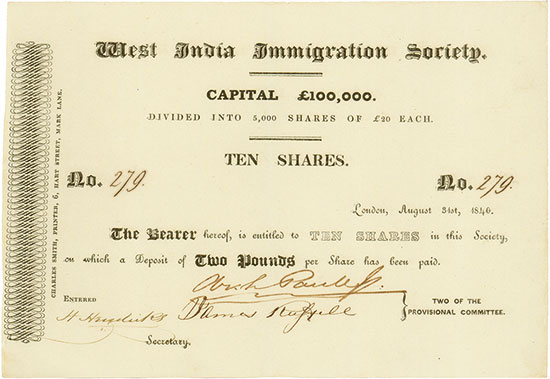 West India Immigration Society.
CAPITAL £100,000.
DIVIDED INTO 5,000 SHARES OF £20 EACH.
TEN SHARES.
No. 279. No. 279.
London, August 31st, 1846.
The Bearer hereof, is entitled to TEN SHARES in this Society,
on which a Deposit of Two Pounds per Share has been paid.
ENTERED
James
Secretary.
TWO OF THE
PROVISIONAL COMMITTEE.
CHARLES SMITH, PRINTER, 6, HART STREET, MARK LANE.